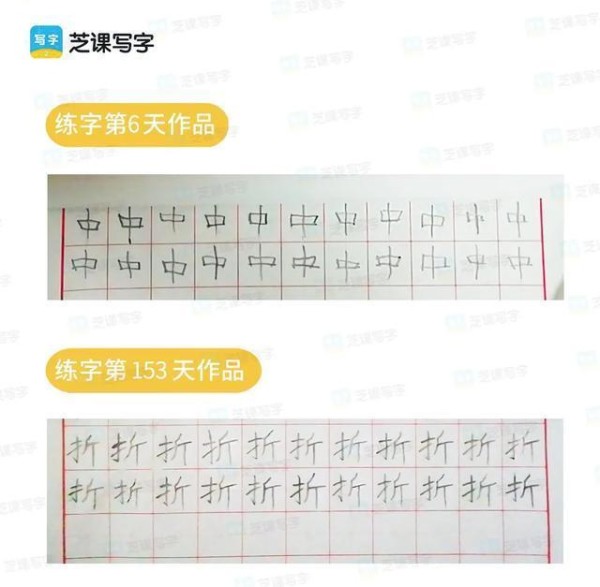 写字 芝课写字
练字第6天作品
中中中中中中中中中中中
中中中中中中中中中中中
练字第153天作品
折折折折折折折折折折折
折折折折折折折折折折折